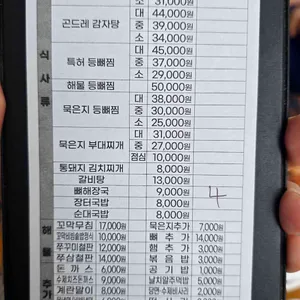 소 31,000원
대 44,000원
곤드레 감자탕 중 39,000원
소 34,000원
대 45,000원
특허 등뼈찜 중 37,000원
소 29,000원
해물 등뼈찜 50,000원
대 38,000원
묵은지 등뼈찜 중 30,000원
소 25,000원
대 31,000원
묵은지 부대찌개 중 27,000원
점심 10,000원
통돼지 김치찌개 8,000원
갈비탕 13,000원
뼈해장국 9,000원 4
장터국밥 8,000원
순대국밥 8,000원
식사류
꼬막무침 17,000원 묵은지추가 7,000원
뼈추가 14,000원
쭈꾸미덮밥 10,000원 햄추가 3,000원
쭈삼철판 14,000원 볶음밥 3,000원
돈까스 6,000원 공기밥 1,000원
수제치즈돈까스 9,000원 날치알주먹밥 5,000원
계란말이 8,000원 당면·수제비사리 2,000원
해물
추가